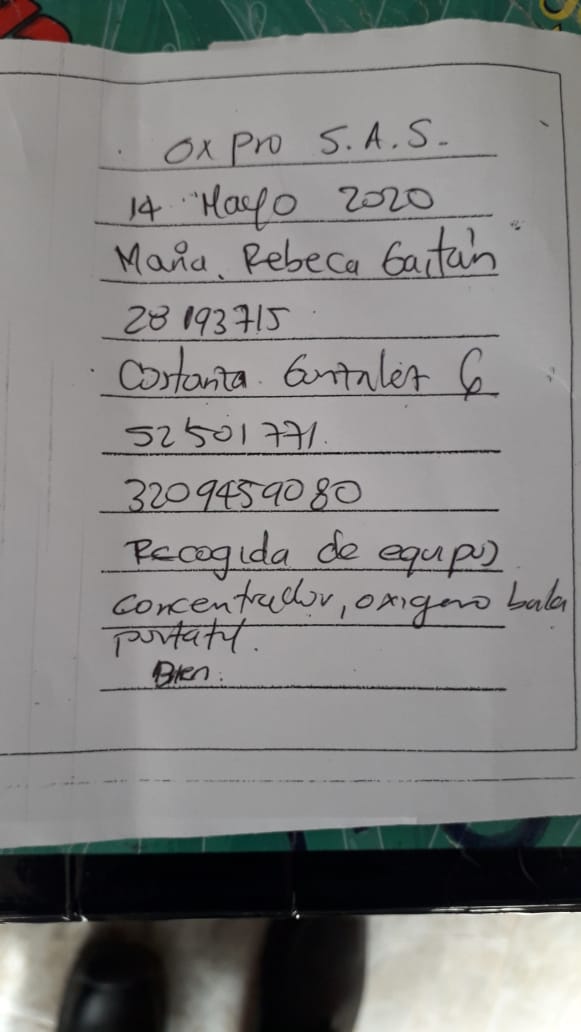 OX Pro S.A.S.
14 Mayo 2020
Maria Rebeca Gaitán
28193715
Costanza Gonzalez G
52501771.
3209459080
Recogida de equipos
concentrador, oxigeno bala
portatyl.
Bien.